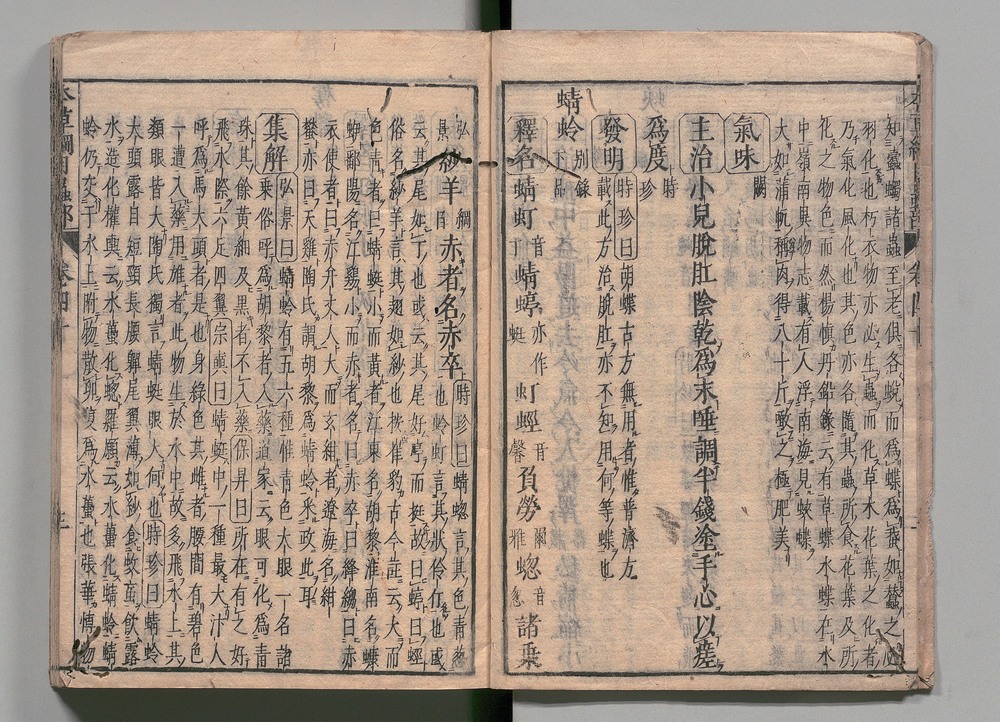 知蠹蠋諸蟲至老俱各蛻而爲蝶爲蛾如蠶之必
羽化也朽衣物亦必生蟲而化草木花葉之化者
乃氣化風化也其色亦各隨其蟲所食花葉及所
化之物色而然楊慎丹鉛錄云有草蝶水蝶在水
中嶺南異物志載有人浮南海見蛺蝶
大如蒲帆稱肉得八十斤噉之極肥美
氣味 闕
主治 小兒脫肛陰乾爲末唾調半錢塗手心以瘥
爲度 時珍
發明 時珍曰胡蝶古方無用者惟普濟方
載此方治脫肛亦不知用何等蝶也
蜻蛉 別錄下品
釋名 蜻虰 音丁 蜻蝏 亦作蜓 虰蛵 音馨 負勞 爾雅 蟌 音怱 諸乗
弘景 紗羊 綱目 赤者名赤卒 時珍曰蜻蟌言其色青葱
也蛉虰言其狀伶仃也或
云其尾如丁也或云其尾好亭而挺故曰蝏曰蛵
俗名紗羊言其翅如紗也按崔豹古今註云大而
色青者曰蜻蜓小而黃者江東名胡黎淮南名蠊
蛜鄱陽名江雞小而赤者名曰赤卒曰絳縐曰赤
衣使者曰赤弁丈人大而玄紺者遼海名紺
蠜亦曰天雞陶氏謂胡黎爲蜻蛉未政此耳
集解 弘景曰蜻蛉有五六種惟青色大眼一名諸
乗俗呼爲胡黎者入藥道家云眼可化爲青
珠其餘黃細及黑者不入藥保昇曰所在有之好
飛水際六足四翼宗奭曰蜻蜓中一種最大汴人
呼爲馬大頭者是也身綠色其雌者腰間有碧色
一遭入藥用雄者此物生於水中故多飛水上其
類眼皆大陶氏獨言蜻蜓眼大何也時珍曰蜻蛉
大頭露目短頸長腰軃尾翼薄如紗食蚊䖟飲露
水造化權輿云水蠆化蟌羅願云水蠆化蜻蛉蜻
蛉仍交于水上附物散卵復爲水蠆也張華博物